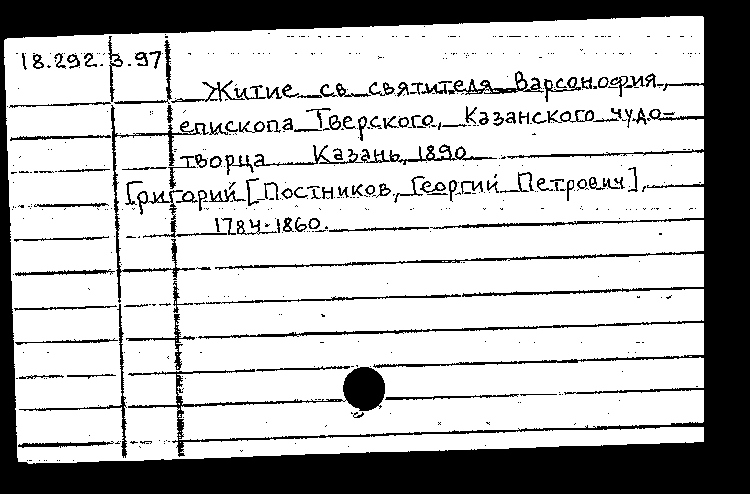 18.292.3.97
Житие св святителя Варсонофия,
епископа Тверского, Казанского чудо-
творца Казань, 1890.
Григорий [Постников, Георгий Петрович],
1784-1860.